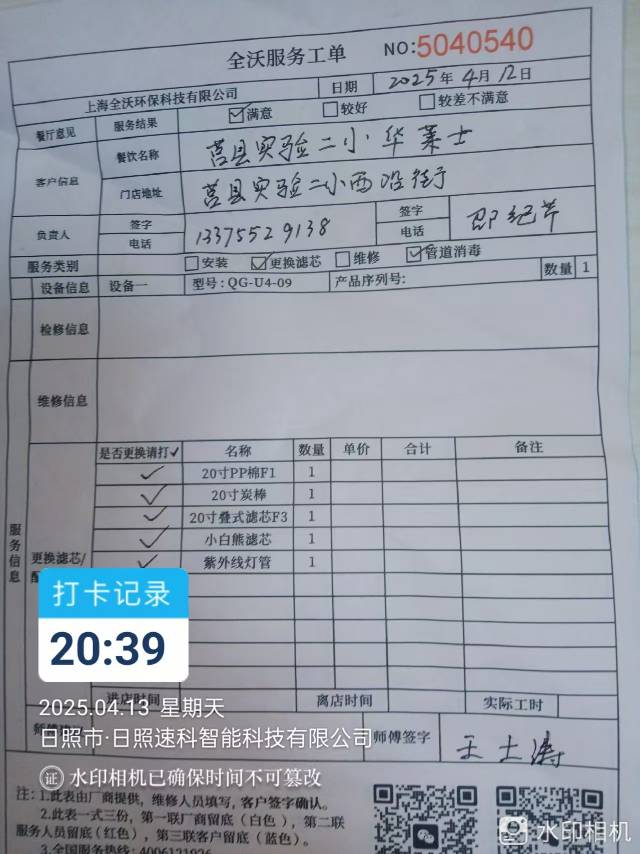 全沃服务工单 NO:5040540
上海全沃环保科技有限公司 日期 2025年4月12日
餐厅意见 服务结果 ☑满意 □较好 □较差不满意
客户信息 餐饮名称 莒县实验二小华莱士
门店地址 莒县实验二小西沿街
负责人 签字 签字
电话 13375529138 电话
服务类别 □安装 ☑更换滤芯 □维修 ☑管道消毒
设备信息 设备一 型号:QG-U4-09 产品序列号: 数量 1
检修信息
维修信息
服务信息
更换滤芯/
是否更换请打✓ 名称 数量 单价 合计 备注
✓ 20寸PP棉F1 1
✓ 20寸炭棒 1
✓ 20寸叠式滤芯F3 1
✓ 小白熊滤芯 1
✓ 紫外线灯管 1
打卡记录
20:39
进店时间 离店时间 实际工时
2025.04.13 星期天
师傅签字 王士涛
日照市·日照速科智能科技有限公司
证 水印相机已确保时间不可篡改
注:1.此表由厂商提供,维修人员填写,客户签字确认。
2.此表一式三份,第一联厂商留底(白色),第二联
服务人员留底(红色),第三联客户留底(蓝色)。
3.全国服务热线:4006121926
水印相机